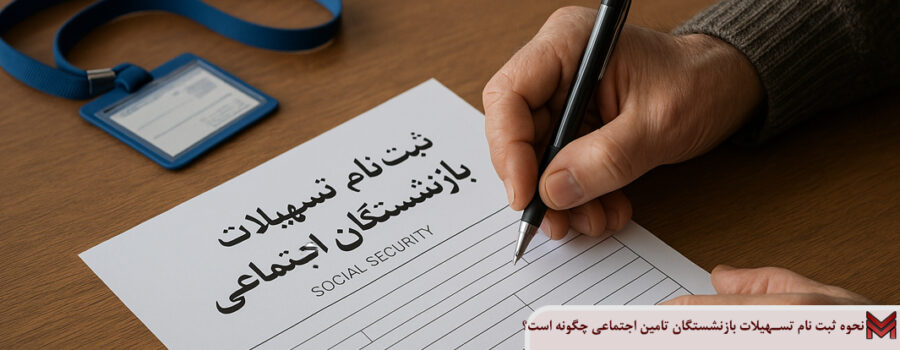 ثبت‌نام تسهیلات
بازنشستگان اجتماعی
SOCIAL SECURITY
نحوه ثبت نام تسـهیلات بازنشستگان تامین اجتماعی چگونه است؟